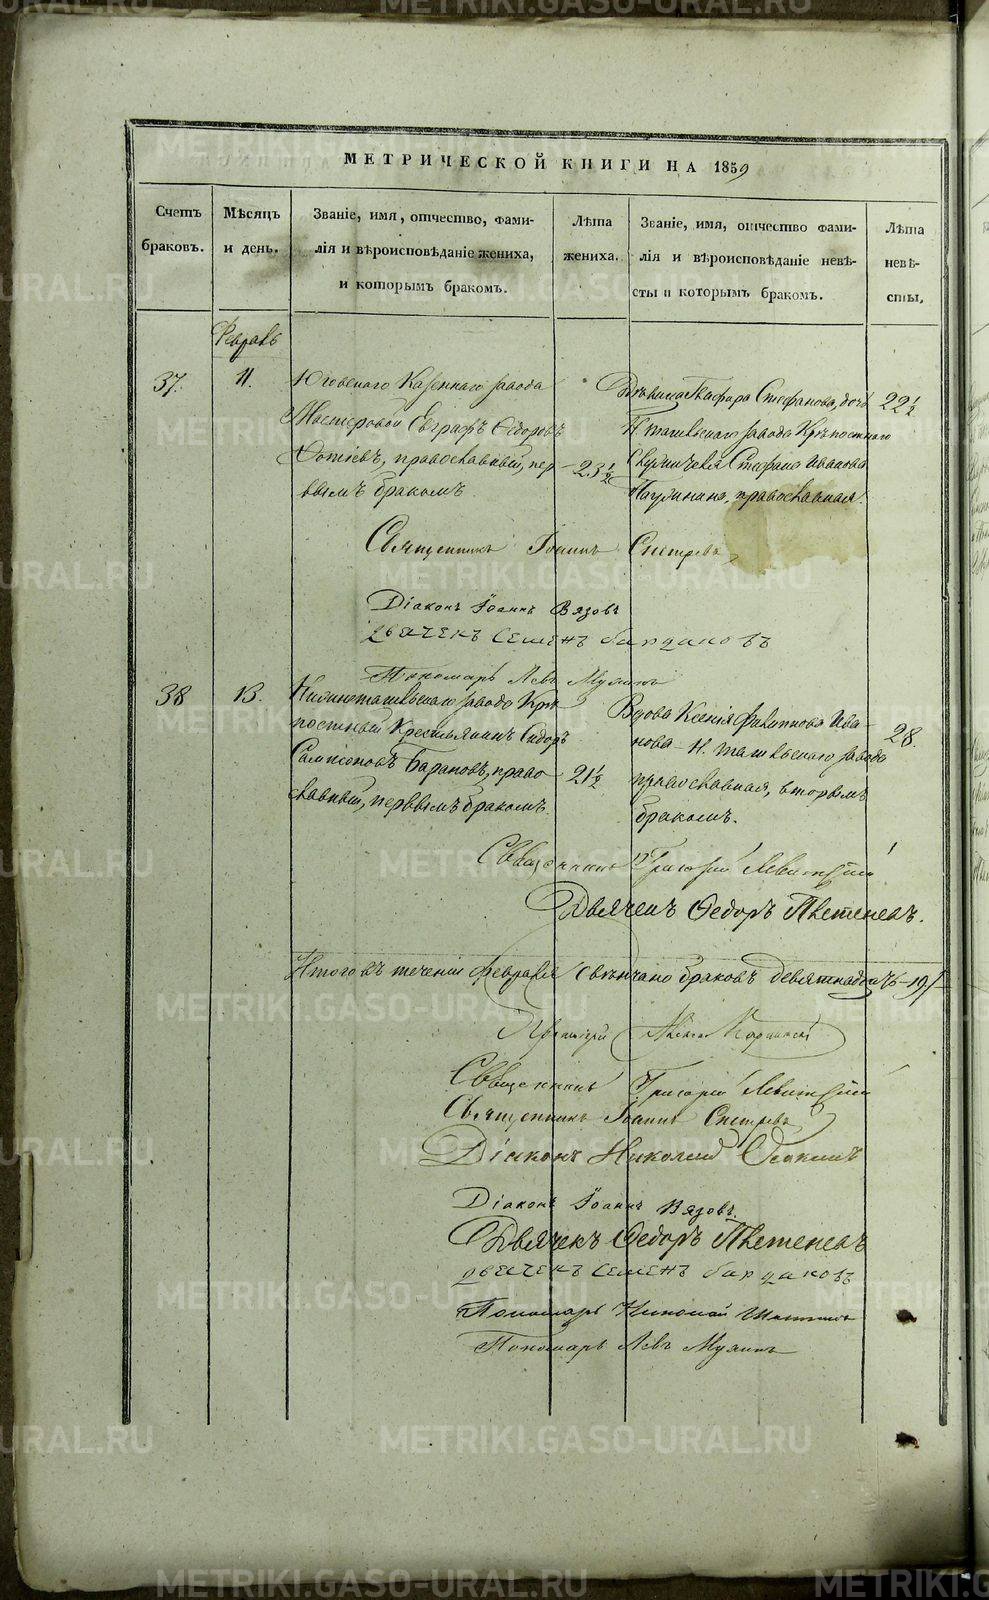 МЕТРИЧЕСКОЙ КНИГИ НА 1859
Счетъ браковъ.
Мѣсяцъ и день.
Званіе, имя, отчество, фами-
лія и вѣроисповѣданіе жениха,
и которымъ бракомъ.
Лѣта жениха.
Званіе, имя, отчество фами-
лія и вѣроисповѣданіе невѣ-
сты и которымъ бракомъ.
Лѣта невѣ-
сты,
Февраль
37.
11.
Юговскаго Казеннаго завода
Мастеровой Евграфъ Ѳедоровъ
православный, пер
вымъ бракомъ
23½
Дѣвица Стефанова, дочь
Н. тагильскаго завода Крѣпостнаго
Стефана Иванова
православная.
22½
Священникъ Іоаннъ
Діаконъ Іоаннъ Вязовъ
Дьячекъ Семенъ Бардаковъ
Пономарь Левъ Мухинъ
38
13.
Нижнетагильскаго завода Крѣ
постный Крестьянинъ Сидоръ
Сампсоновъ Барановъ, право
славный, первымъ бракомъ.
21½
Вдова Ксенія Филиппова Ива-
нова Н. тагильскаго завода
православная, вторымъ
бракомъ.
28.
Священникъ Григорій Левитскій
Дьячекъ Ѳедоръ
Итого въ теченіи февраля свѣнчано браковъ девятнадцать - 19
Протоіерей
Священникъ Григорій Левитскій
Священникъ Іоаннъ
Діаконъ Николай
Діаконъ Іоаннъ Вязовъ.
Дьячекъ Ѳедоръ
Дьячекъ Семенъ Бардаковъ
Пономарь Николай
Пономарь Левъ Мухинъ
METRIKI.GASO-URAL.RU